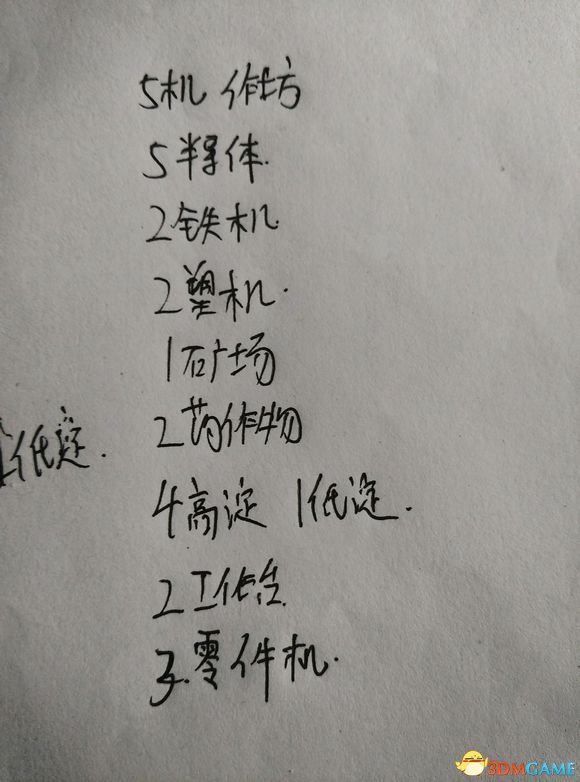 5机 作坊
5半导体.
2铁机.
2塑机.
1石广场
2药作物
低淀.
4高淀 1低淀.
2工作台
3.零件机.
3DMGAME